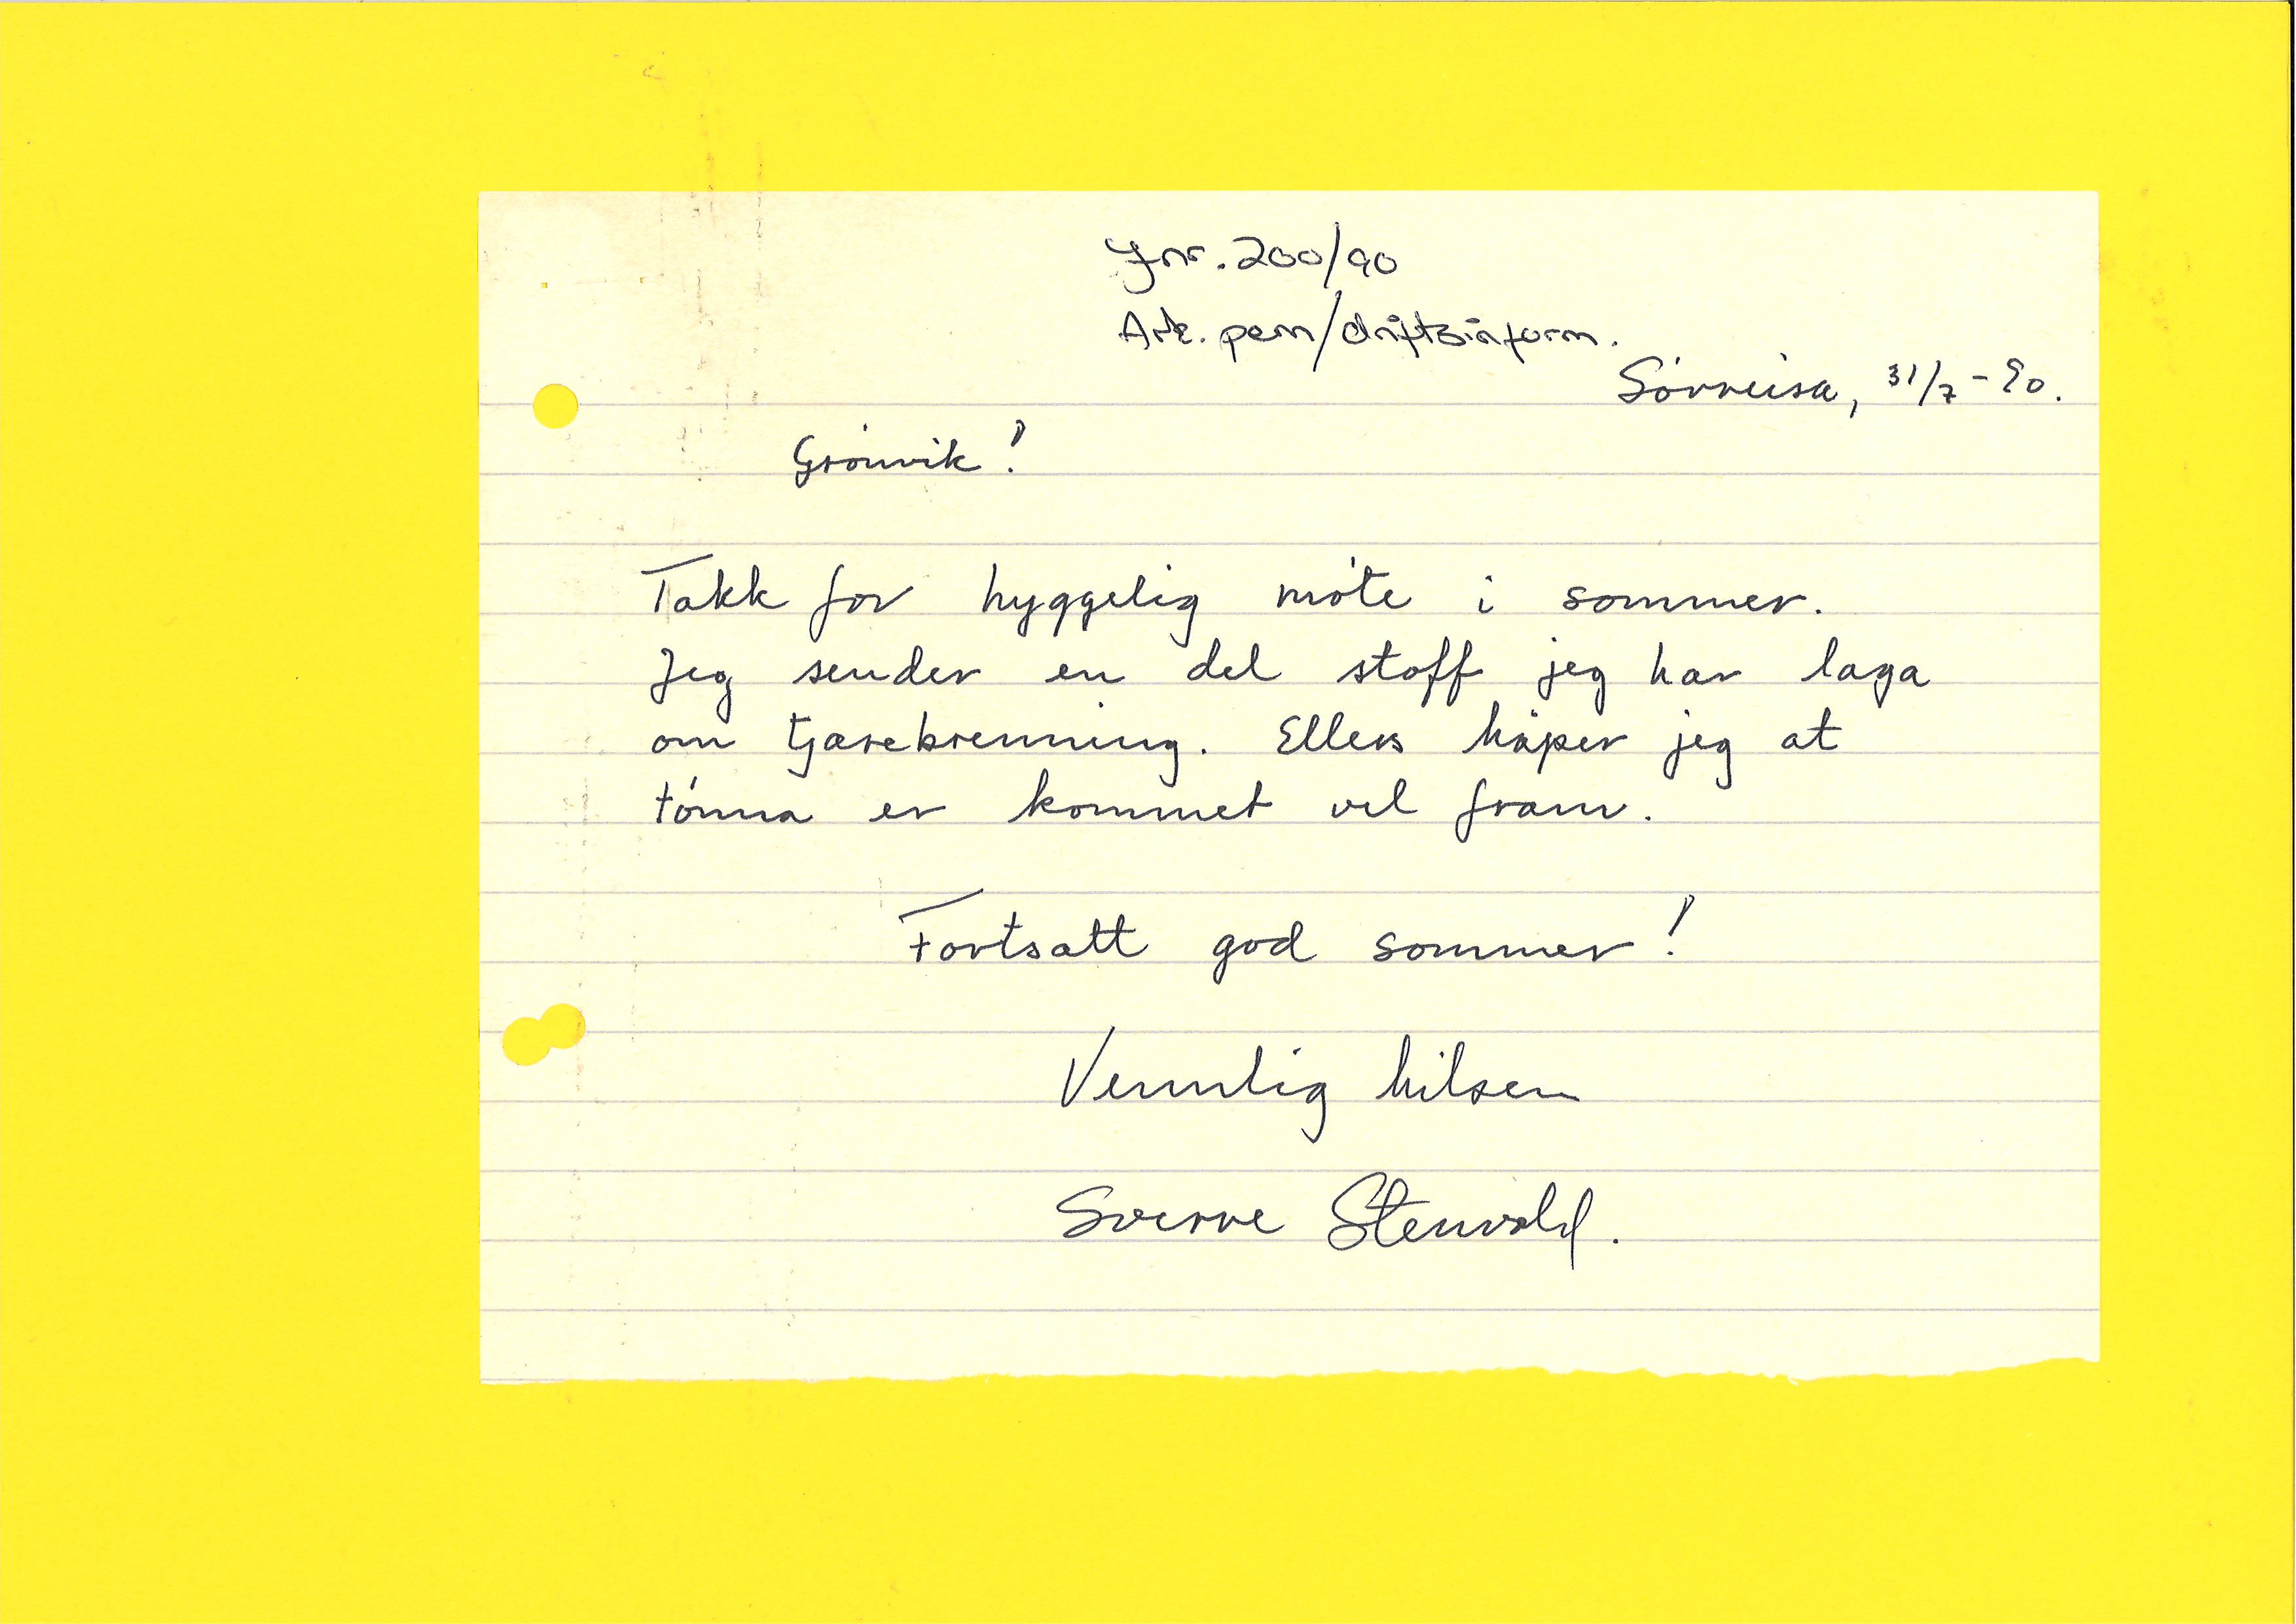 Jnr. 200/90
Ark. pem/driftsinform.
Sørreisa, 31/7-90.
Grønvik!
Takk for hyggelig møte i sommer.
Jeg sender en del stoff jeg har laga
om tjærebrenning. Ellers håper jeg at
tønna er kommet vel fram.
Fortsatt god sommer!
Vennlig hilsen
Sverre Stenvold.